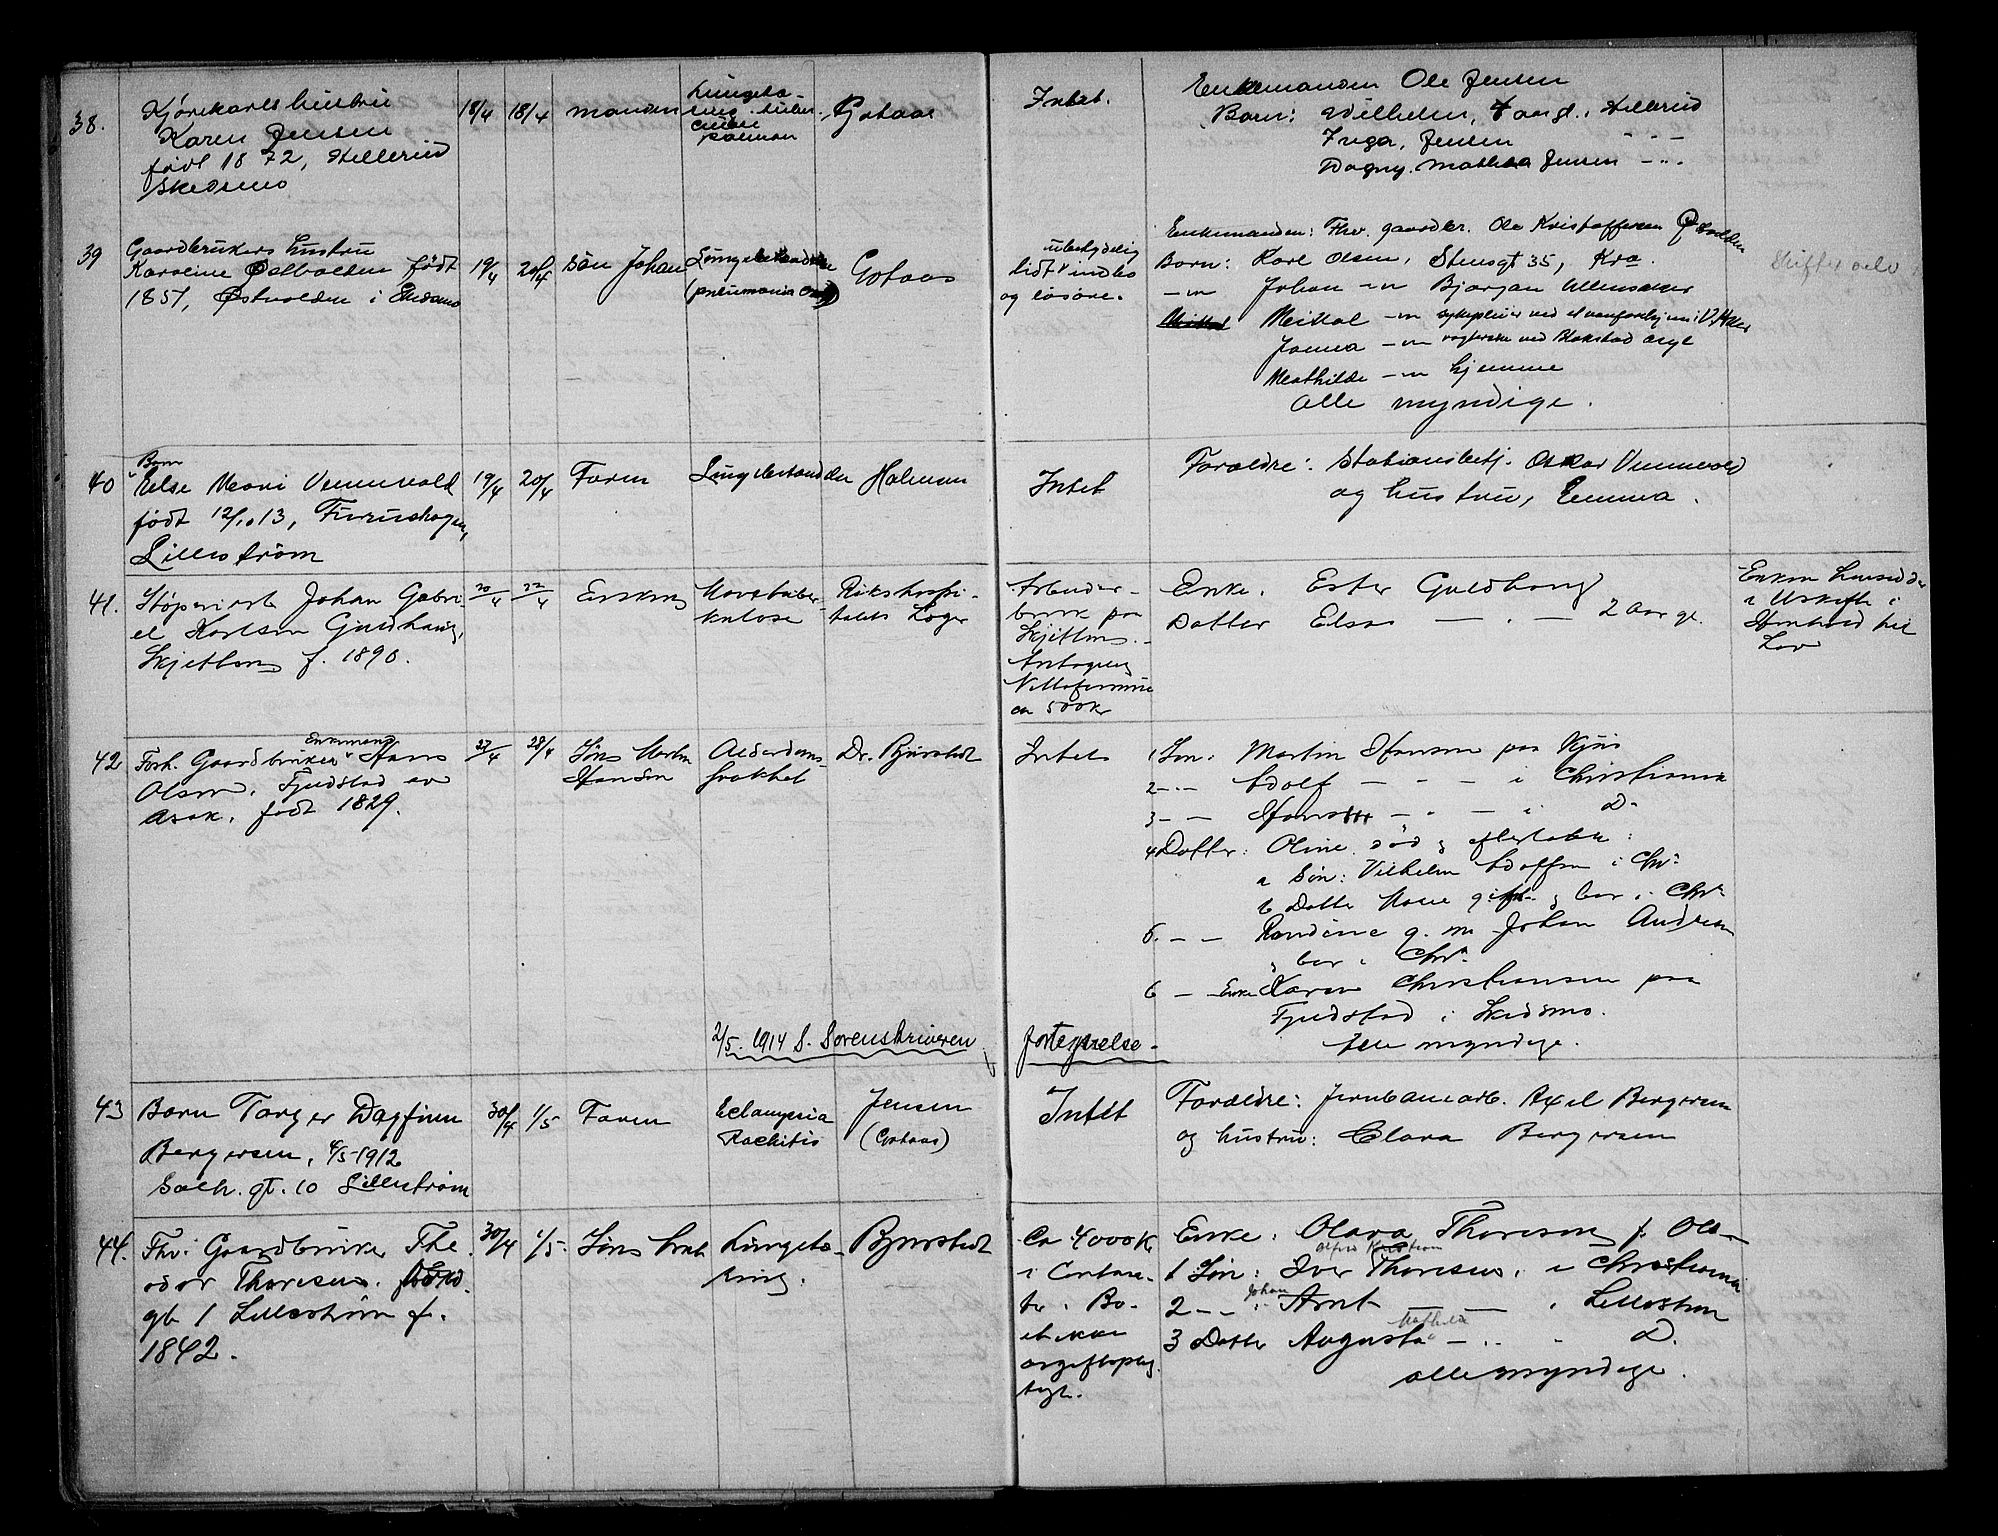 38.
Kjørekarls hustru
Karen Jensen
født 1872, Hellerud
Skedsmo
18/4 18/4 manden
Gotaas
Intet.
Enkemanden Ole Jensen
Barn: Wilhelm, Hellerud
Inga, Jensen
Dagny, Mathea Jensen
39
Gaardbrukers hustru
Karoline født
1851, Østvolden i
19/4 20/4 søn Johan
(pneumonia
Gotaas
ubetydelig
lidt indbo
og løsøre.
Enkemanden: Fhv. gaardbr. Ole Kristoffersen
Barn: Karl Olsen, Stensgt 35, Kra.
Johan —"— Bjørgan Ullensaker
—"— sykepleier ved
Janna —"— ved Asyl
Mathilde —"— hjemme
Alle myndige.
Skifter selv
40
Barn
Else Mari Vennevold
født 12/10 13, Furuskogen,
Lillestrøm
19/4 20/4 Faren Lungebetændelse Holmsen
Intet
Forældre: Stationsbetj. Oskar Vennevold
og hustru, Emma.
41.
Støperiarb Johan Gabri-
el Karlsen Guldhaug,
Skjetten f. 1890.
20/4 22/4 Enken
Rikshospi-
talets Læger
Arbeider-
bruk paa
Skjetten.
Antagelig
Nettoformue
ca 500 kr
Enke. Ester Guldhaug
Datter Elsa — . — 2 aar gl.
Enken hensidder
i Uskifte i
Henhold til
Lov
42
Enkemand
Forh. Gaardbruker Hans
Olsen, Tjudstad av
Asak, født 1829.
27/4 28/4 Søn Martin
Hansen
Alderdoms-
svakhet
Dr. Bjørstedt
Intet
1 Søn: Martin Hansen paa Kjus
2 — " — Adolf — — i Christiania
3 — — Hans — " — i d-
4 Datter: Oline død & efterladt:
a Søn: Vilhelm Adolfsen i Chr.
b Datter Marie gift & bor i Chr.
5. — — Randine g. m Johan Andersen
& bor i Chr.
6 — — Enke Karen Christiansen paa
Tjudstad i Skedsmo.
Alle myndige.
2/5. 1914 S. Sorenskriveren
fortegnelse.
43
Barn Torger Dagfinn
Bergersen, 4/5-1912
Solh. gt. 10 Lillestrøm
30/4 1/5 Faren
Eclampsia
Rachitis
Jensen
(Gotaas)
Intet
Forældre: Jernbanearb. Axel Bergersen
og hustru: Clara Bergersen
44.
Fhv. Gaardbruker The-
odor Thoresen.
gt 1 Lillestrøm f.
1842.
30/4 1/5. Søn Arnt
Bjørstedt
Ca 4000 Kr
i Contan-
ter. Bo-
et ikke
avgiftsplig-
tigt.
Enke. Olava Thoresen f. Ols-
Alfred Kristian
1 Søn: Iver Thoresen, i Christiania
Johan
2 — " — Arnt — — i Lillestrøm
Mathilde
3 Datter Augusta — " — d.
alle myndige.